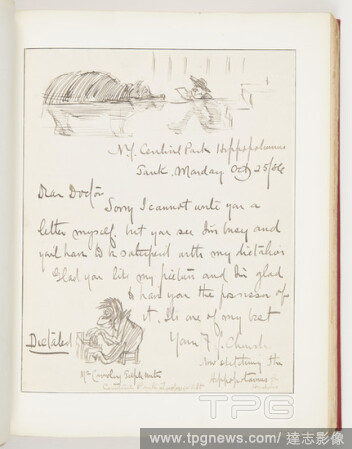 N.Y. Central Park Hippopotamus
Tank. Monday Oct 25/86
Dear Doctor
Sorry I cannot write you a
letter myself but you see I'm busy and
you'll have to be satisfied with my dictation
Glad you like my picture and I'm glad
to have you the possessor of
it. Its one of my best
Yours F. S. Church
Dictated
now sketching the
Hippopotamus
Mr Crowley
Central Park
TPG
www.tpgnews.com / 達志影像